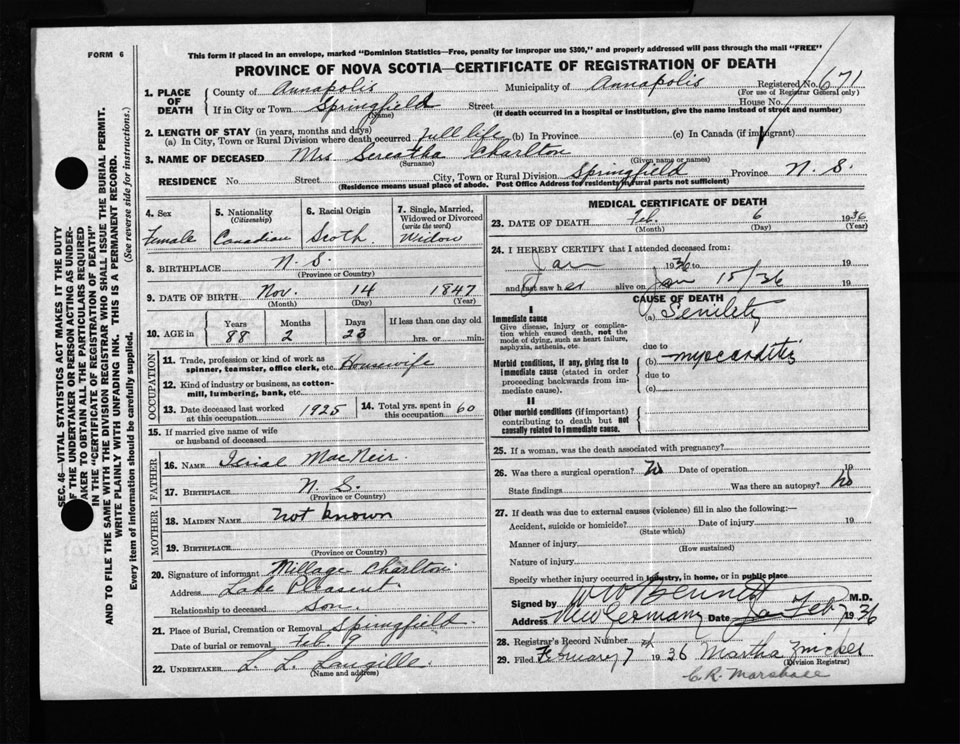 FORM 6
This form if placed in an envelope, marked "Dominion Statistics—Free, penalty for improper use $300," and properly addressed will pass through the mail "FREE"
PROVINCE OF NOVA SCOTIA—CERTIFICATE OF REGISTRATION OF DEATH
1. PLACE OF DEATH
County of Annapolis Municipality of Annapolis Registered No. 671
(For use of Registrar General only)
If in City or Town Springfield Street House No.
(Name) (If death occurred in a hospital or institution, give the name instead of street and number)
2. LENGTH OF STAY (in years, months and days)
(a) In City, Town or Rural Division where death occurred full life (b) In Province (c) In Canada (if immigrant)
3. NAME OF DECEASED Mrs Sereatha Charlton
(Surname) (Given name or names)
RESIDENCE No. Street City, Town or Rural Division Springfield Province N. S.
(Residence means usual place of abode. Post Office Address for residents in rural parts not sufficient)
SEC. 46—VITAL STATISTICS ACT MAKES IT THE DUTY
OF THE UNDERTAKER OR PERSON ACTING AS UNDER-
TAKER TO OBTAIN ALL THE PARTICULARS REQUIRED
IN THE "CERTIFICATE OF REGISTRATION OF DEATH"
AND TO FILE THE SAME WITH THE DIVISION REGISTRAR WHO SHALL ISSUE THE BURIAL PERMIT.
WRITE PLAINLY WITH UNFADING INK. THIS IS A PERMANENT RECORD.
Every item of information should be carefully supplied. (See reverse side for instructions.)
4. Sex
Female
5. Nationality
(Citizenship)
Canadian
6. Racial Origin
Scotch
7. Single, Married, Widowed or Divorced
(write the word)
Widow
8. BIRTHPLACE N. S.
(Province or Country)
9. DATE OF BIRTH Nov. 14 1847
(Month) (Day) (Year)
10. AGE in Years Months Days If less than one day old
88 2 23 hrs. or min.
OCCUPATION
11. Trade, profession or kind of work as spinner, teamster, office clerk, etc. Housewife
12. Kind of industry or business, as cotton-mill, lumbering, bank, etc.
13. Date deceased last worked at this occupation 1925
14. Total yrs. spent in this occupation 60
15. If married give name of wife or husband of deceased
FATHER
16. NAME Isrial MacNeir
17. BIRTHPLACE N. S.
(Province or Country)
MOTHER
18. MAIDEN NAME not known
19. BIRTHPLACE
(Province or Country)
20. Signature of informant Millage Charlton
Address Lake Pleasent
Relationship to deceased Son.
21. Place of Burial, Cremation or Removal Springfield.
Date of burial or removal Feb. 9
22. UNDERTAKER L. L. Langille.
(Name and address)
MEDICAL CERTIFICATE OF DEATH
23. DATE OF DEATH Feb. 6 1936
(Month) (Day) (Year)
24. I HEREBY CERTIFY that I attended deceased from:
Jan 1936 to 19
and last saw her alive on Jan 15/36 19
CAUSE OF DEATH
I
Immediate cause
Give disease, injury or complica-
tion which caused death, not the
mode of dying, such as heart failure,
asphyxia, asthenia, etc.
(a) Senility
due to
Morbid conditions, if any, giving rise to
immediate cause (stated in order
proceeding backwards from im-
mediate cause).
(b) myocarditis
due to
(c)
II
Other morbid conditions (if important)
contributing to death but not
causally related to immediate cause.
25. If a woman, was the death associated with pregnancy?
26. Was there a surgical operation? no Date of operation 19
State findings Was there an autopsy? no
27. If death was due to external causes (violence) fill in also the following:—
Accident, suicide or homicide? Date of injury 19
(State which)
Manner of injury
(How sustained)
Nature of injury
Specify whether injury occurred in industry, in home, or in public place
Signed by W W Bennett M.D.
Address New Germany Date Jan Feb 7 1936
28. Registrar's Record Number
29. Filed February 7 1936 Martha Zwicker
(Division Registrar)
C.R. Marshall